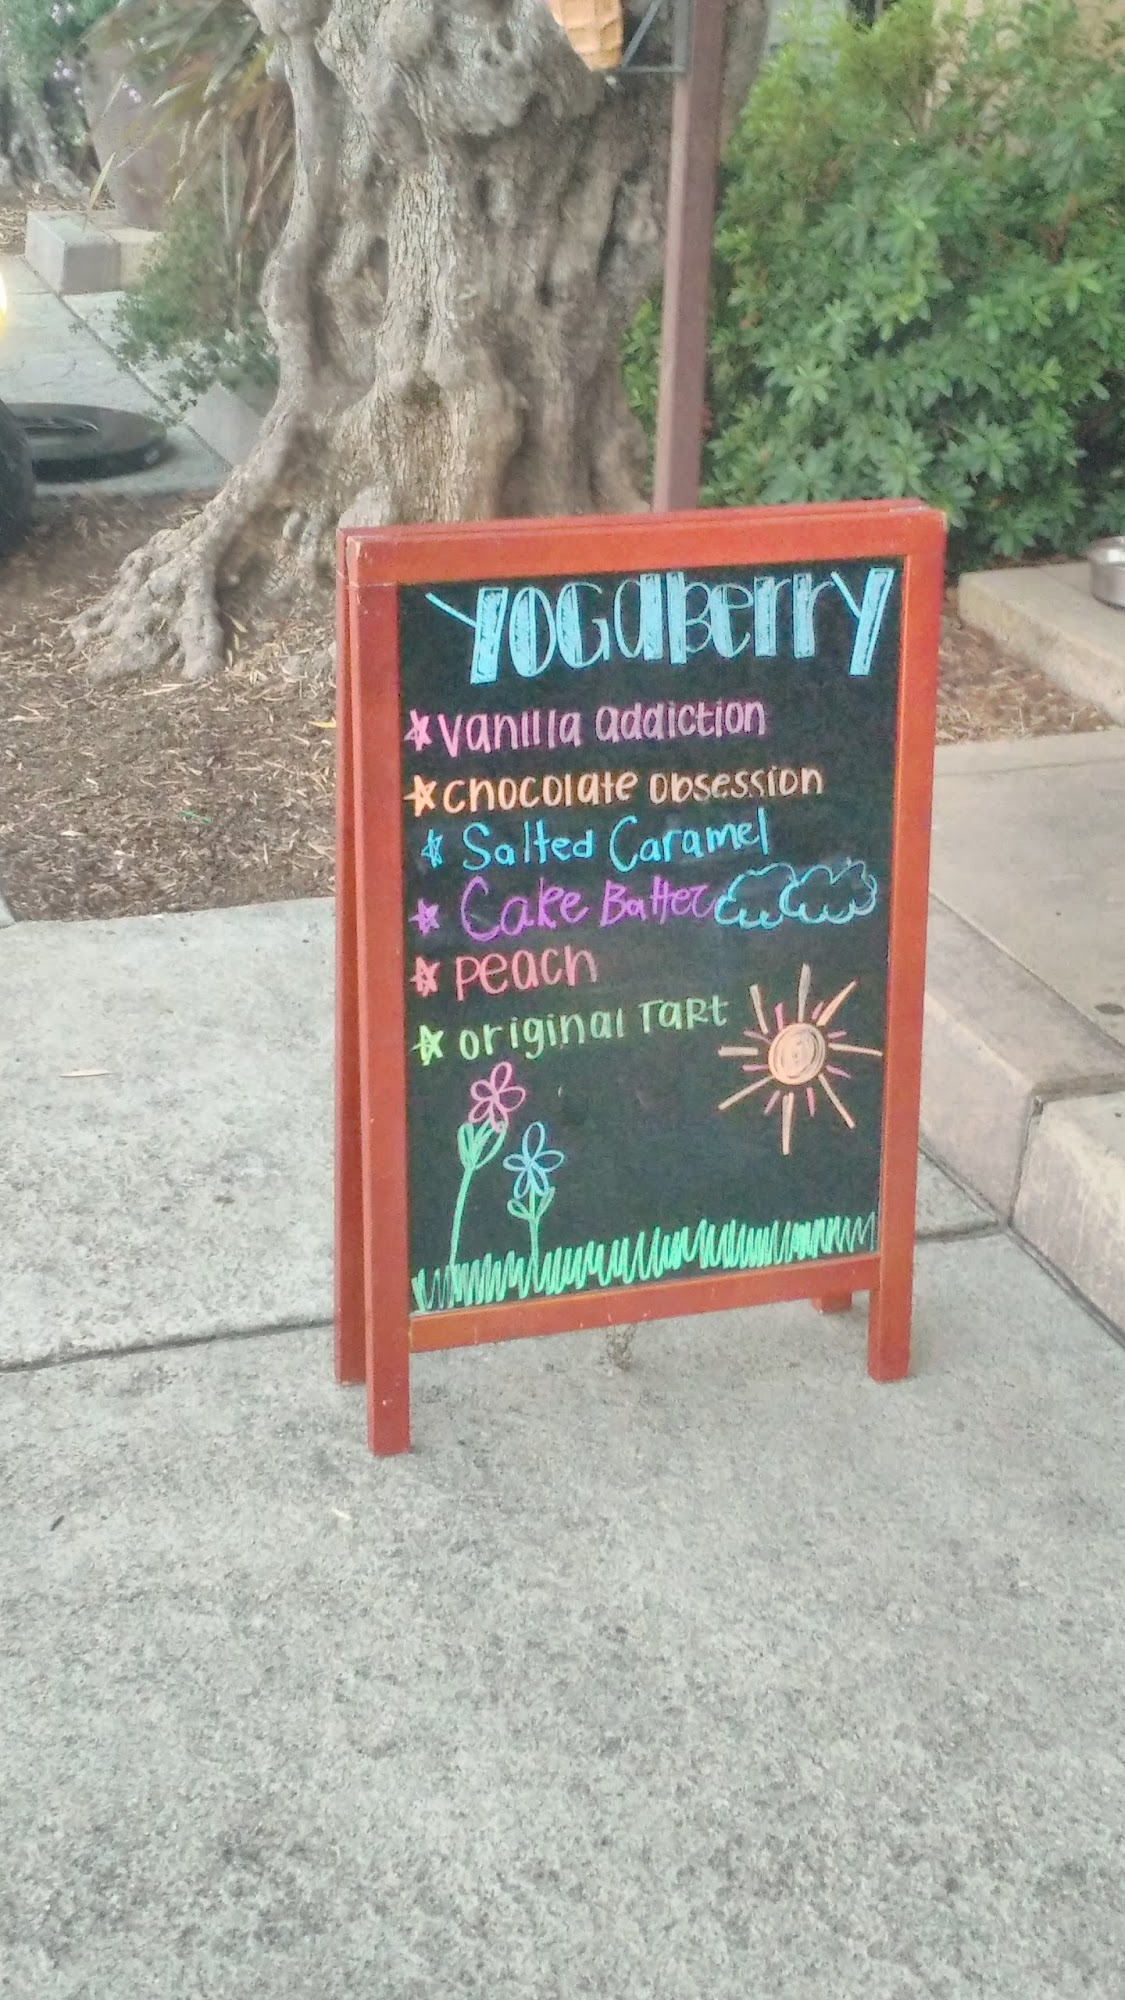 YOGABERRY
vanilla addiction
chocolate obsession
Salted Caramel
Cake Batter
peach
original TaRt